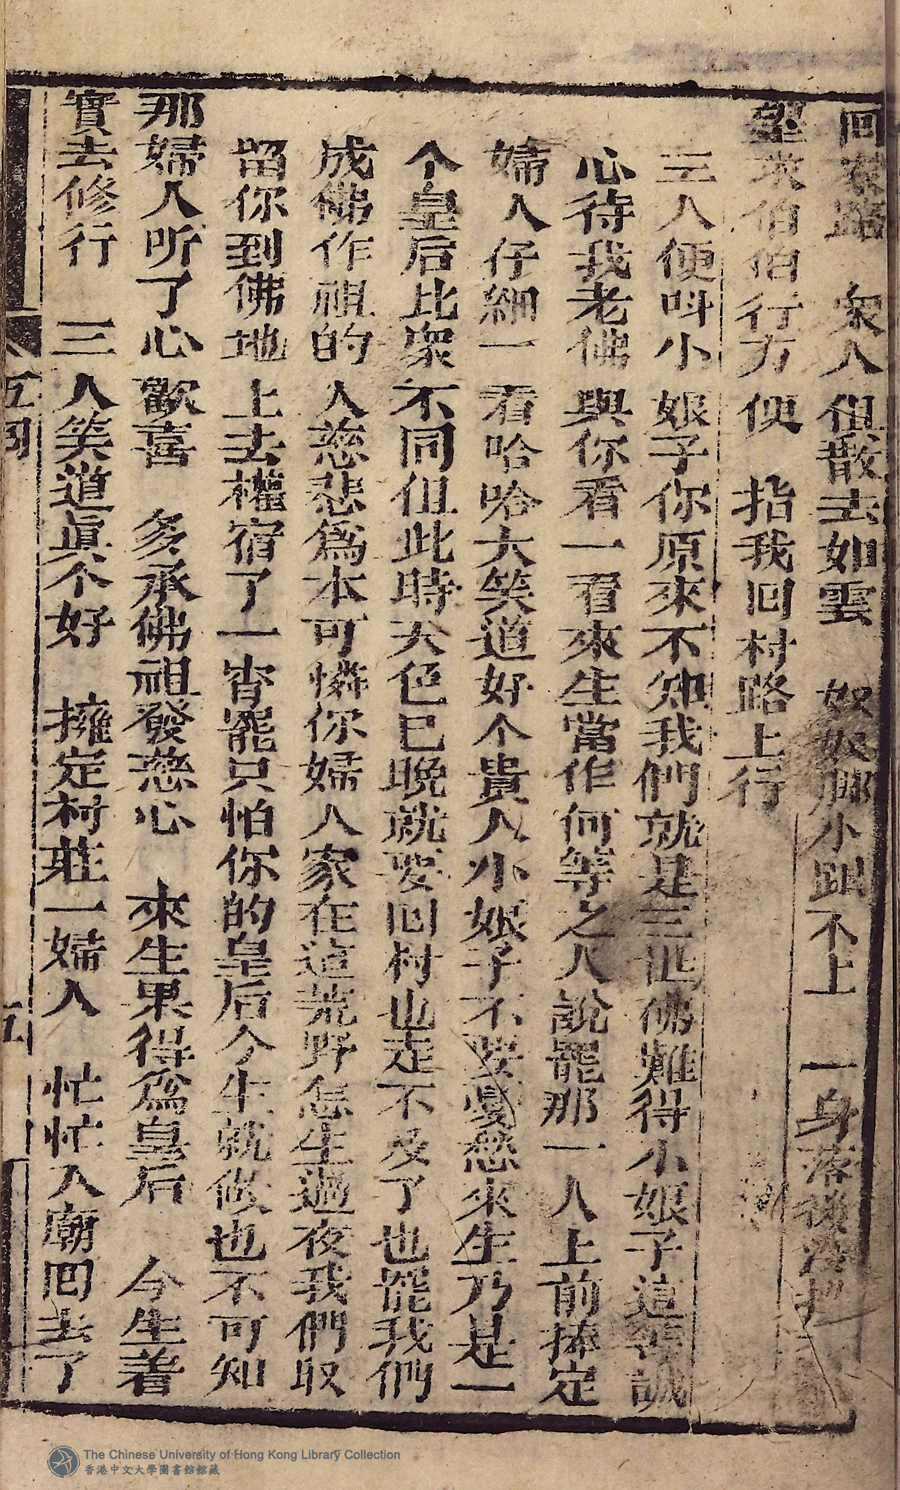 回來路 衆人伹散去如雲 奴奴脚小跟不上 一身落後
望求伯伯行方便 指我回村路上行
三人便呌小娘子你原來不知我們就是三世佛難得小娘子這等誠
心待我老佛與你看一看來生當作何等之人說罷那一人上前捧定
婦人仔細一看哈哈大笑道好个貴人小娘子不要憂愁來生乃是一
个皇后比衆不同伹此時天色已晚就要回村也走不及了也罷我們
成佛作祖的人慈悲爲本可憐你婦人家在這荒野怎生過夜我們収
留你到佛地上去權宿了一宵罷只怕你的皇后今生就做也不可知
那婦人听了心歡喜 多承佛祖發慈心 來生果得爲皇后 今生着
實去修行 三人笑道眞个好 擁定村莊一婦人 忙忙入廟回去了
五囘
五
The Chinese University of Hong Kong Library Collection
香港中文大學圖書館館藏